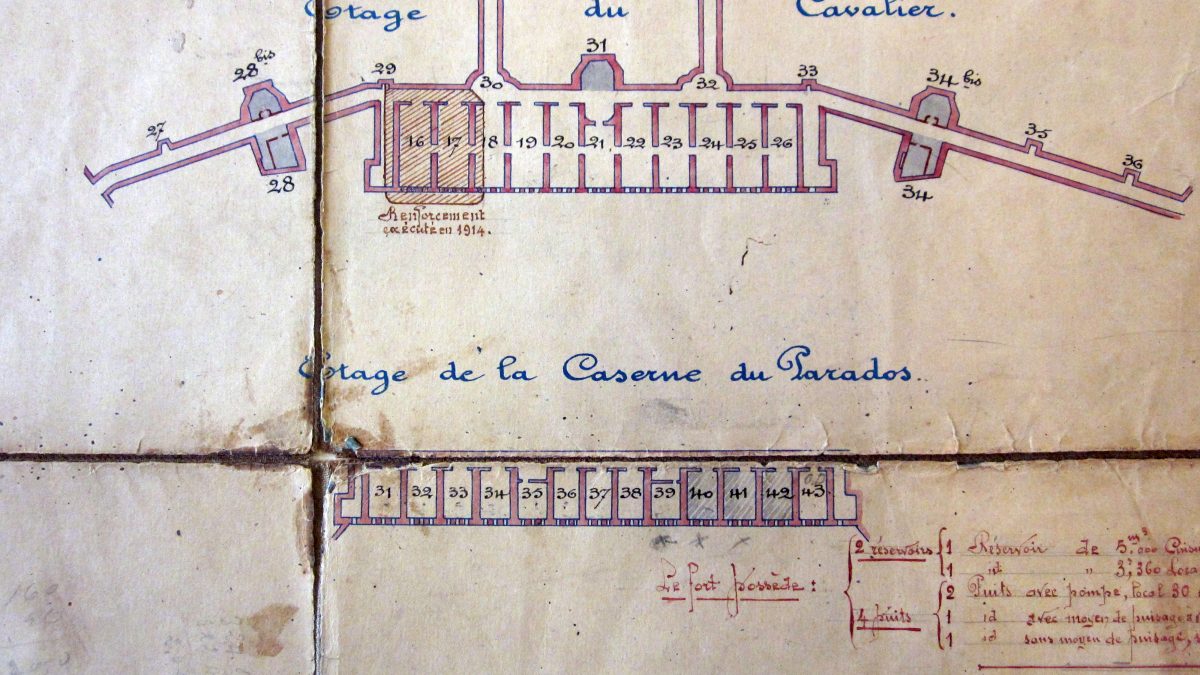 Etage du Cavalier.
28 bis 29 30 31 32 33 34 bis
27 35 36
28 34
16 17 18 19 20 21 22 23 24 25 26
Renforcement
exécuté en 1914.
Etage de la Caserne du Parados
31 32 33 34 35 36 37 38 39 40 41 42 43
Le fort possède :
2 réservoirs { 1 Réservoir de 5.m³000
1 id " 3.360
4 puits { 2 Puits avec pompe, local 30
1 id avec moyen de puisage
1 id sans moyen de puisage,